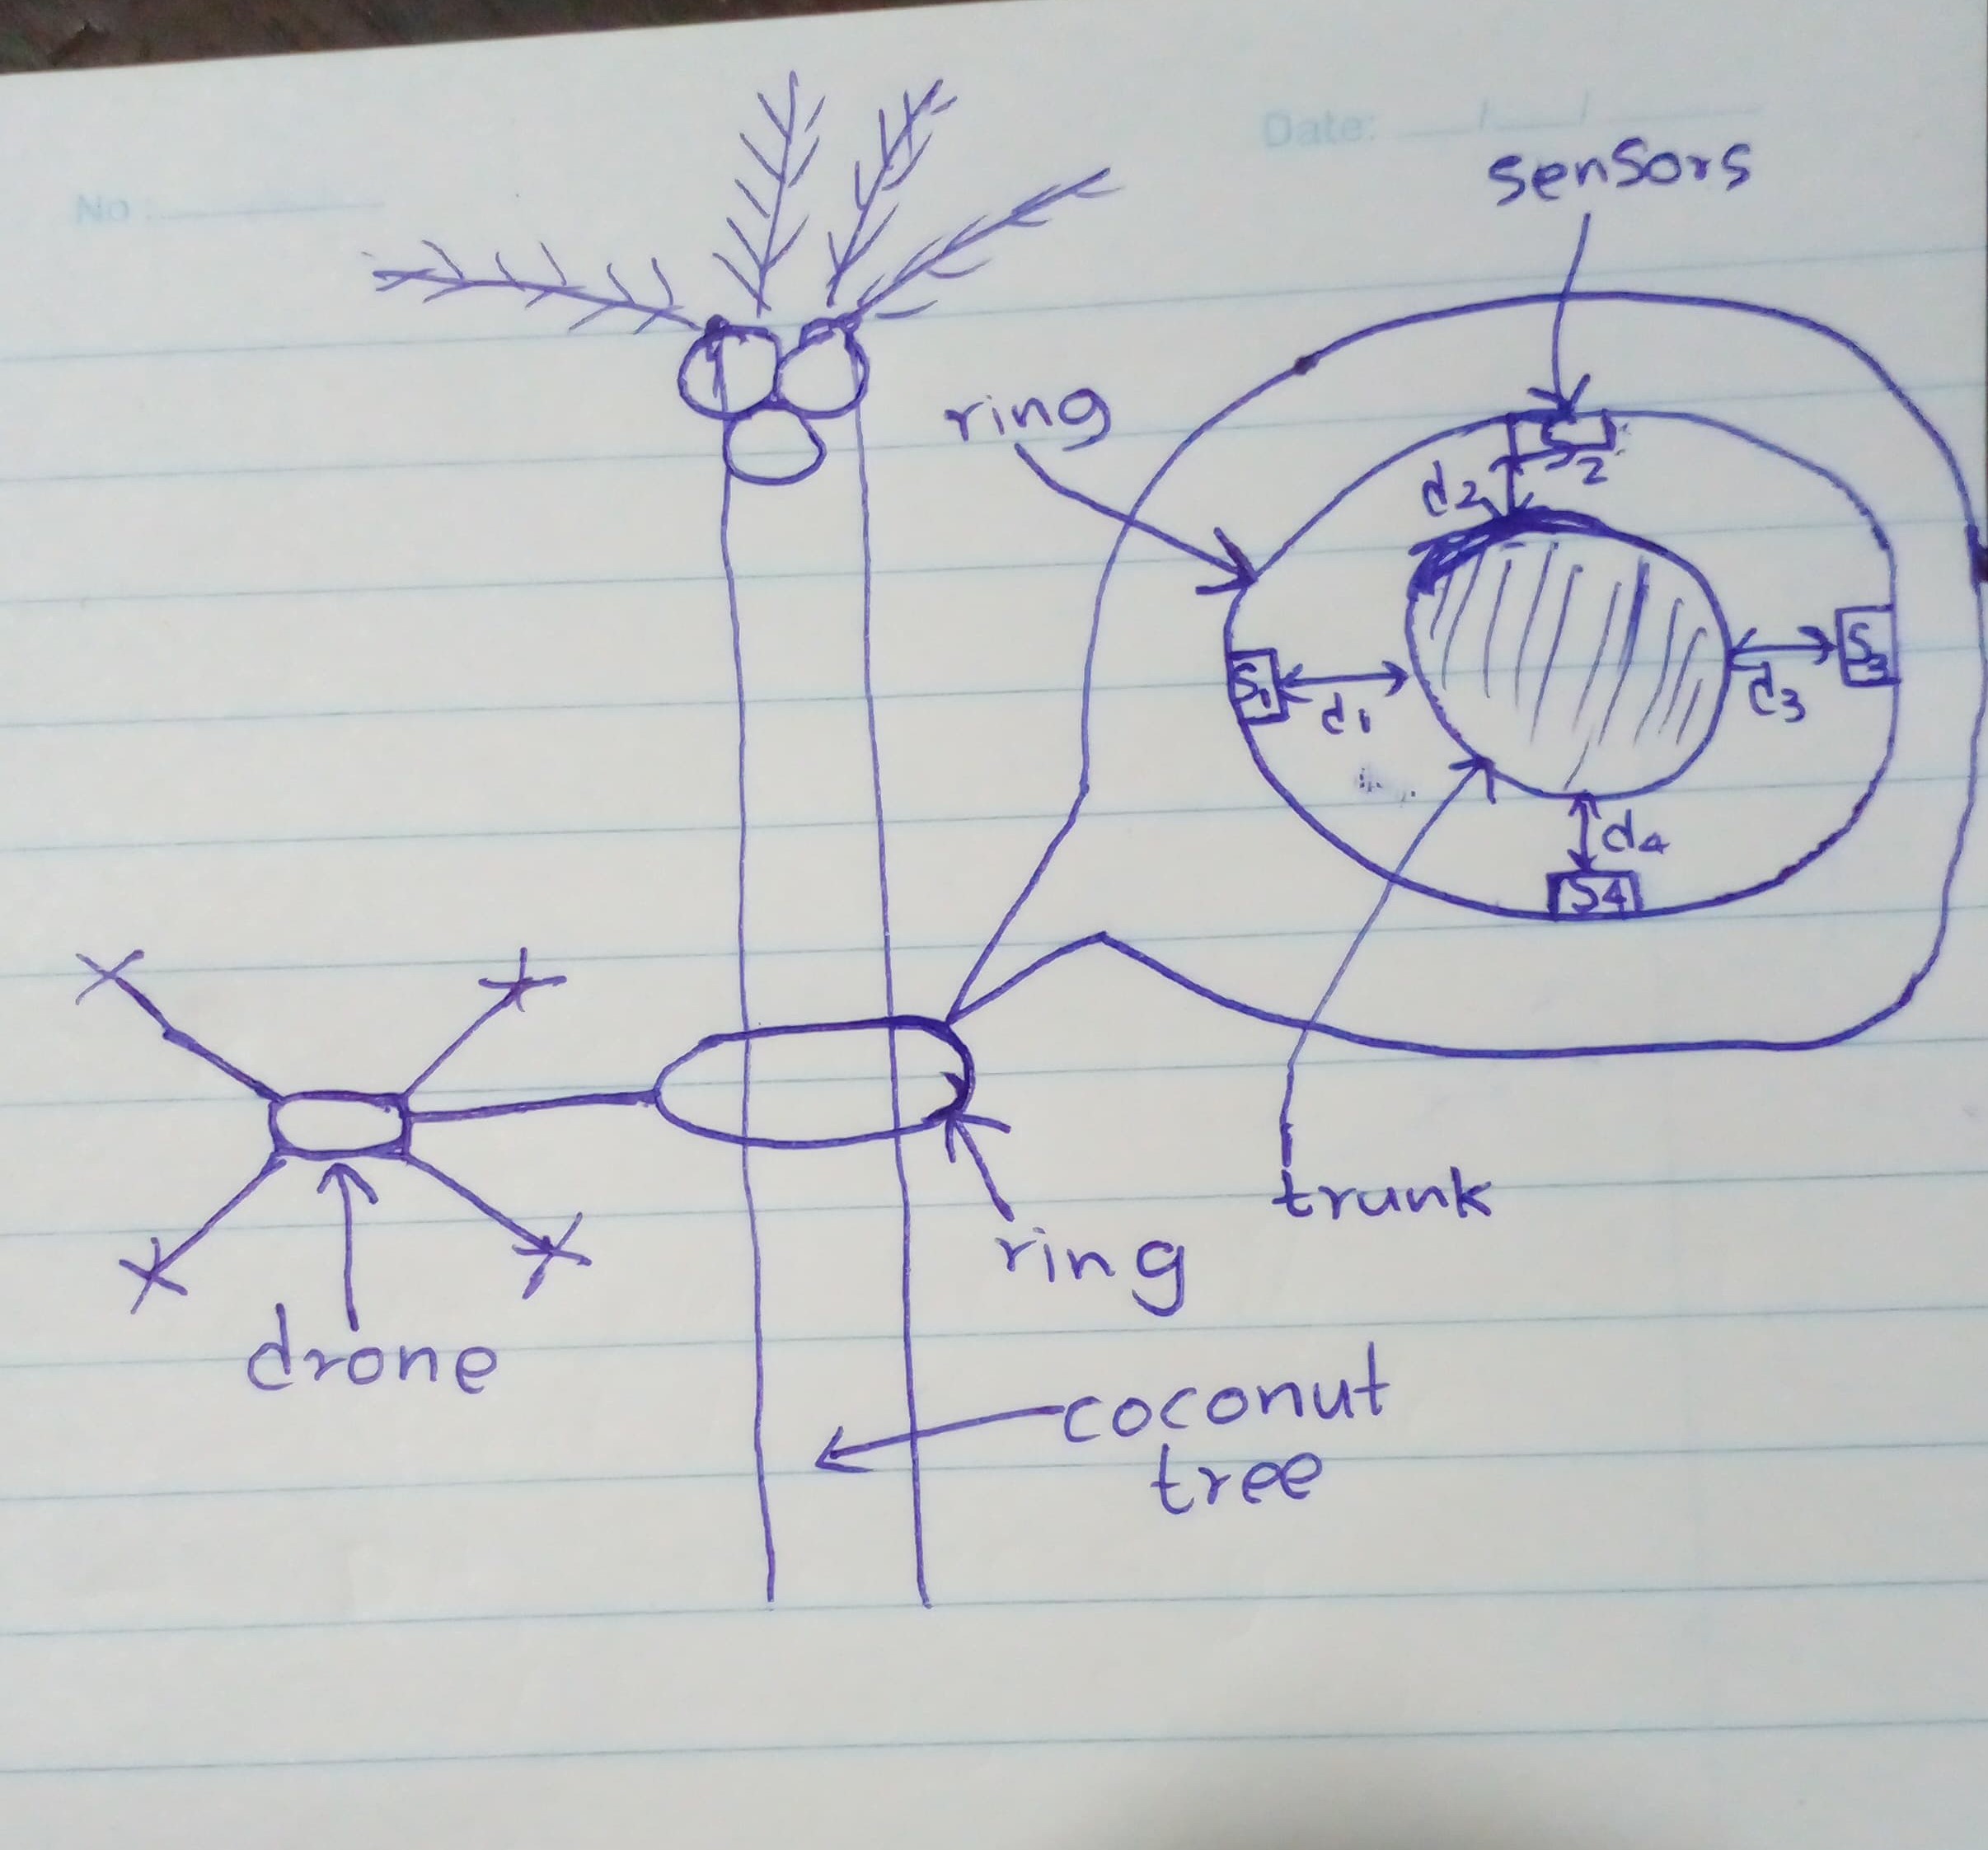 No :
Date: / /
sensors
ring
S2
d2
S1
d1
S3
d3
d4
S4
trunk
ring
drone
coconut
tree